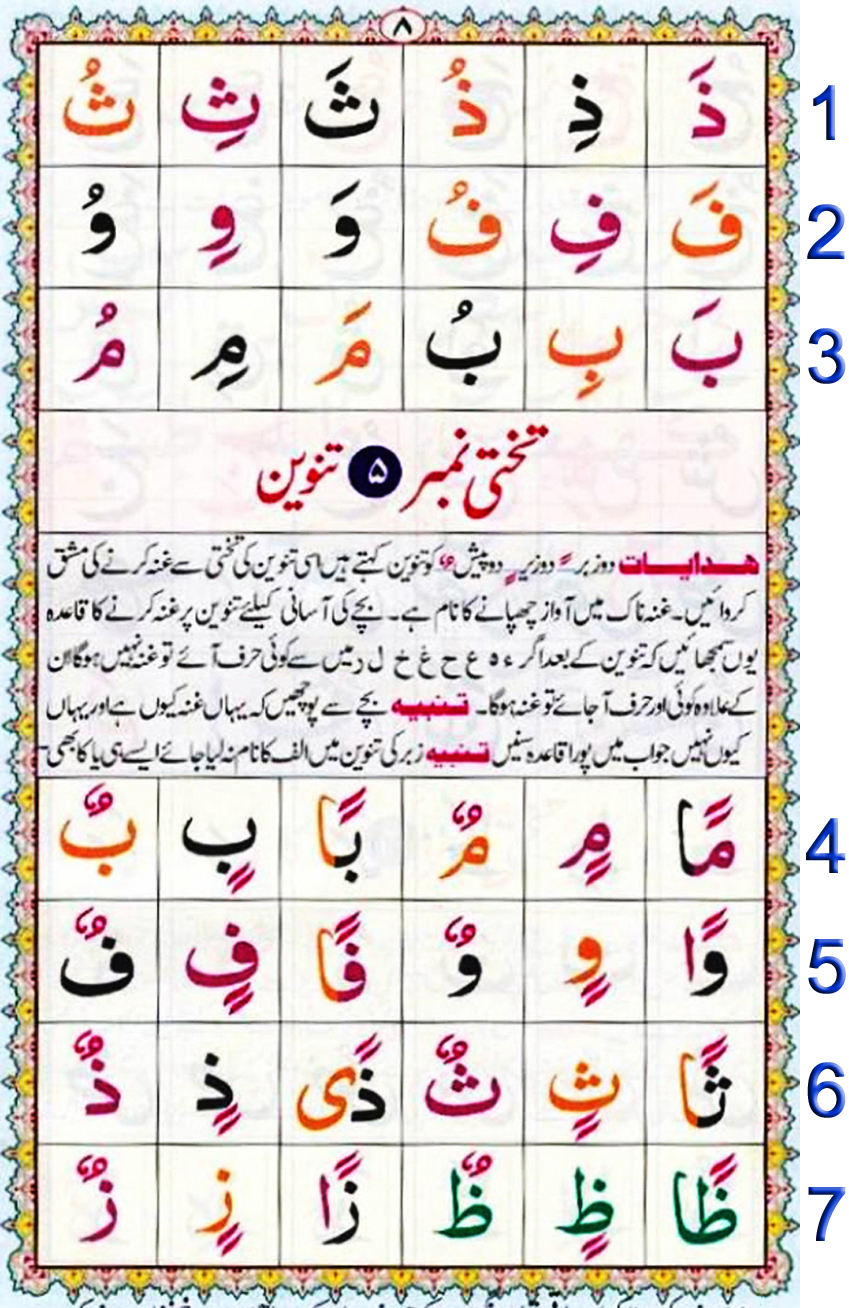 ۸
ذَ ذِ ذُ ثَ ثِ ثُ 1
فَ فِ فُ وَ وِ وُ 2
بَ بِ بُ مَ مِ مُ 3
تختی نمبر ۵ تنوین
ھدایات دو زبر ً دو زیر ٍ دو پیش ٌ کو تنوین کہتے ہیں اسی تنوین کی تختی سے غنہ کرنے کی مشق
کروائیں۔ غنہ ناک میں آواز چھپانے کا نام ہے۔ بچے کی آسانی کیلئے تنوین پر غنہ کرنے کا قاعدہ
یوں سمجھائیں کہ تنوین کے بعد اگر ء ہ ع ح غ خ ل ر میں سے کوئی حرف آئے تو غنہ نہیں ہوگا ان
کے علاوہ کوئی اور حرف آ جائے تو غنہ ہوگا۔ تنبیہ بچے سے پوچھیں کہ یہاں غنہ کیوں ہے اور یہاں
کیوں نہیں جواب میں پورا قاعدہ سنیں تنبیہ زبر کی تنوین میں الف کا نام نہ لیا جائے ایسے ہی یا کا بھی
مًا مٍ مٌ بًا بٍ بٌ 4
وًا وٍ وٌ فًا فٍ فٌ 5
ثًا ثٍ ثٌ ذًی ذٍ ذٌ 6
ظًا ظٍ ظٌ زًا زٍ زٌ 7